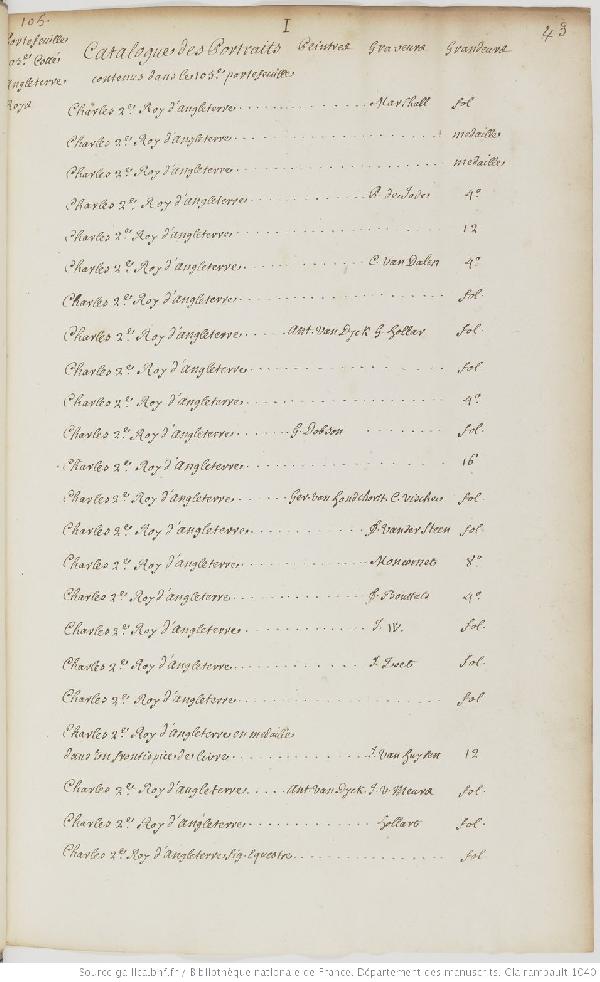 105.
portefeuille
105.e Cotté
Angleterre
Roys
I
43
Catalogue des Portraits Peintres Graveurs Grandeurs
contenus dans le 105.e portefeuille
Charles 2.e Roy d'angleterre Marshall fol
Charles 2.e Roy d'angleterre medaille
Charles 2.e Roy d'angleterre medaille
Charles 2.e Roy d'angleterre P. de Jode 4.o
Charles 2.e Roy d'angleterre 12
Charles 2.e Roy d'angleterre C. van Dalen 4.o
Charles 2.e Roy d'angleterre fol.
Charles 2.e Roy d'angleterre Ant. van Dyck G. hollar fol.
Charles 2.e Roy d'angleterre fol
Charles 2.e Roy d'angleterre 4.o
Charles 2.e Roy d'angleterre G. Dobson fol.
Charles 2.e Roy d'angleterre 16
Charles 2.e Roy d'angleterre Ger. von hondthorst. C. Visscher fol.
Charles 2.e Roy d'angleterre F. Vander Steen fol.
Charles 2.e Roy d'angleterre Moncornet 8.o
Charles 2.e Roy d'angleterre F. Bouttels 4.o
Charles 2.e Roy d'angleterre J. W. fol.
Charles 2.e Roy d'angleterre fol.
Charles 2.e Roy d'angleterre fol
Charles 2.e Roy d'Angleterre en medaille
dans un frontispice de livre J. Van huyten 12
Charles 2.e Roy d'angleterre Ant van Dyck J. v. Meurs fol.
Charles 2.e Roy d'angleterre hollart fol.
Charles 2.e Roy d'Angleterre fig. Equestre fol
Source gallica.bnf.fr / Bibliothèque nationale de France. Département des manuscrits. Clairambault 1040